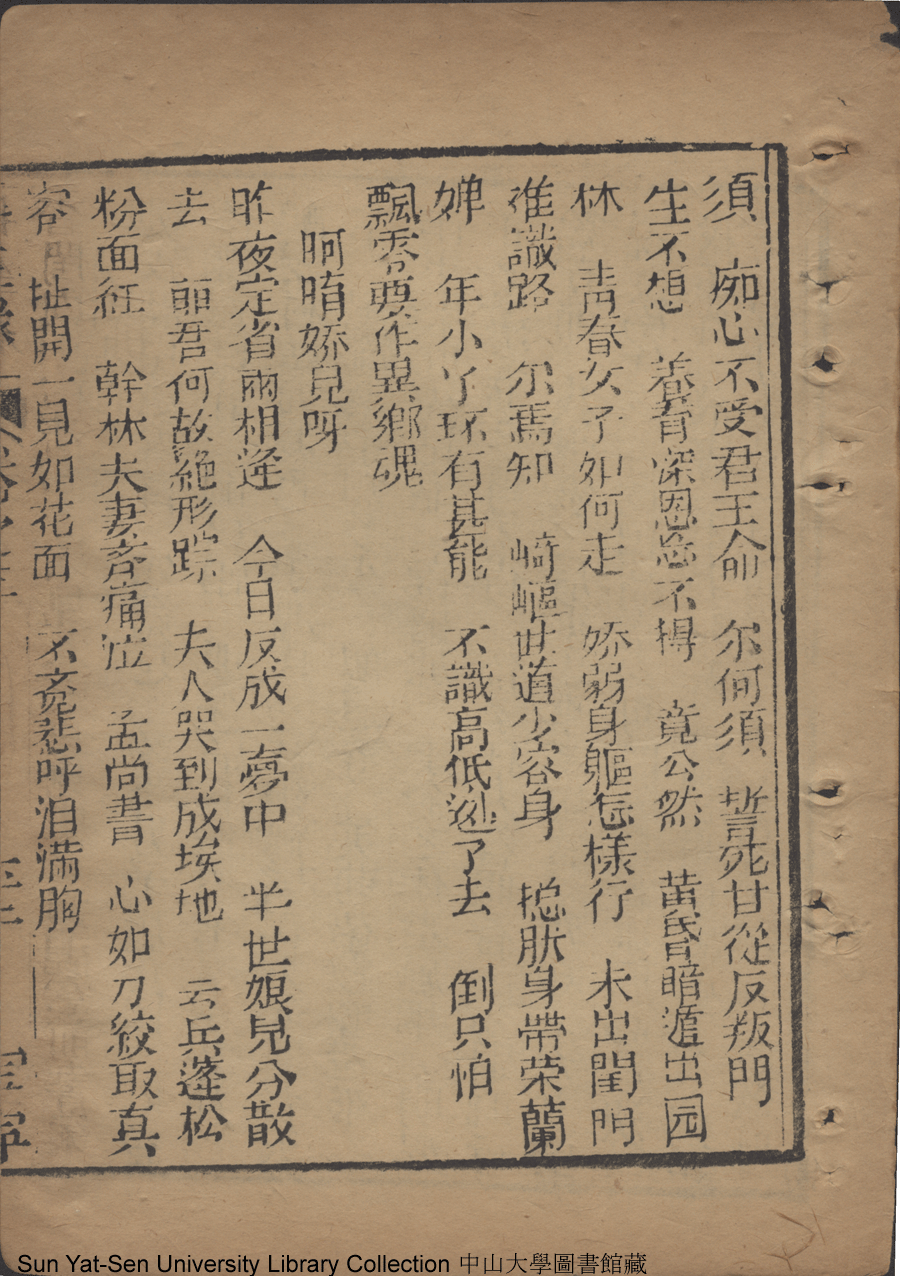 須　痴心不受君王命　尔何須　誓死甘從反叛門
生不想　养育深恩忘不得　竟公然　黄昏暗遁出园
林　青春女子如何走　娇弱身軀怎樣行　未出閨門
准識路　尔焉知　崎嶇世道少容身　搃肰身帶荣蘭
婢　年小丫环有甚能　不識高低迯了去　倒只怕
飄零要作異鄉魂
呵唷娇兒呀
昨夜定省兩相逢　今日反成一夢中　半世娘兒分散
去　丽君何故絕形踪　夫人哭到成埃地　云兵蓬松
粉面紅　幹林夫妻斉痛泣　孟尚書　心如刀絞取真
容　扯開一見如花面　不覔悲呼泪满胸
Sun Yat-Sen University Library Collection 中山大學圖書館藏